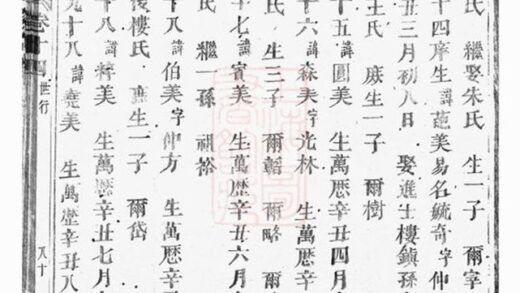 氏 繼娶朱氏 生一子 爾宰
十四庠生諱蓝美易名毓奇字仲
丑三月初八日 娶進士樓鎮孫
王氏 庶生一子 爾樹
十五諱圓美 生萬歷辛丑四月
十六諱森美字光林 生萬歷辛
氏 生三子 爾韜 爾略 爾
十七諱賓美 生萬歷辛丑六月
氏 繼一孫 祖裕
十八諱伯美字仲方 生萬歷辛
後樓氏 生一子 爾岱
十八諱粹美 生萬歷辛丑七月
九十八諱堯美 生萬歷辛丑八
卷十 世行 八十